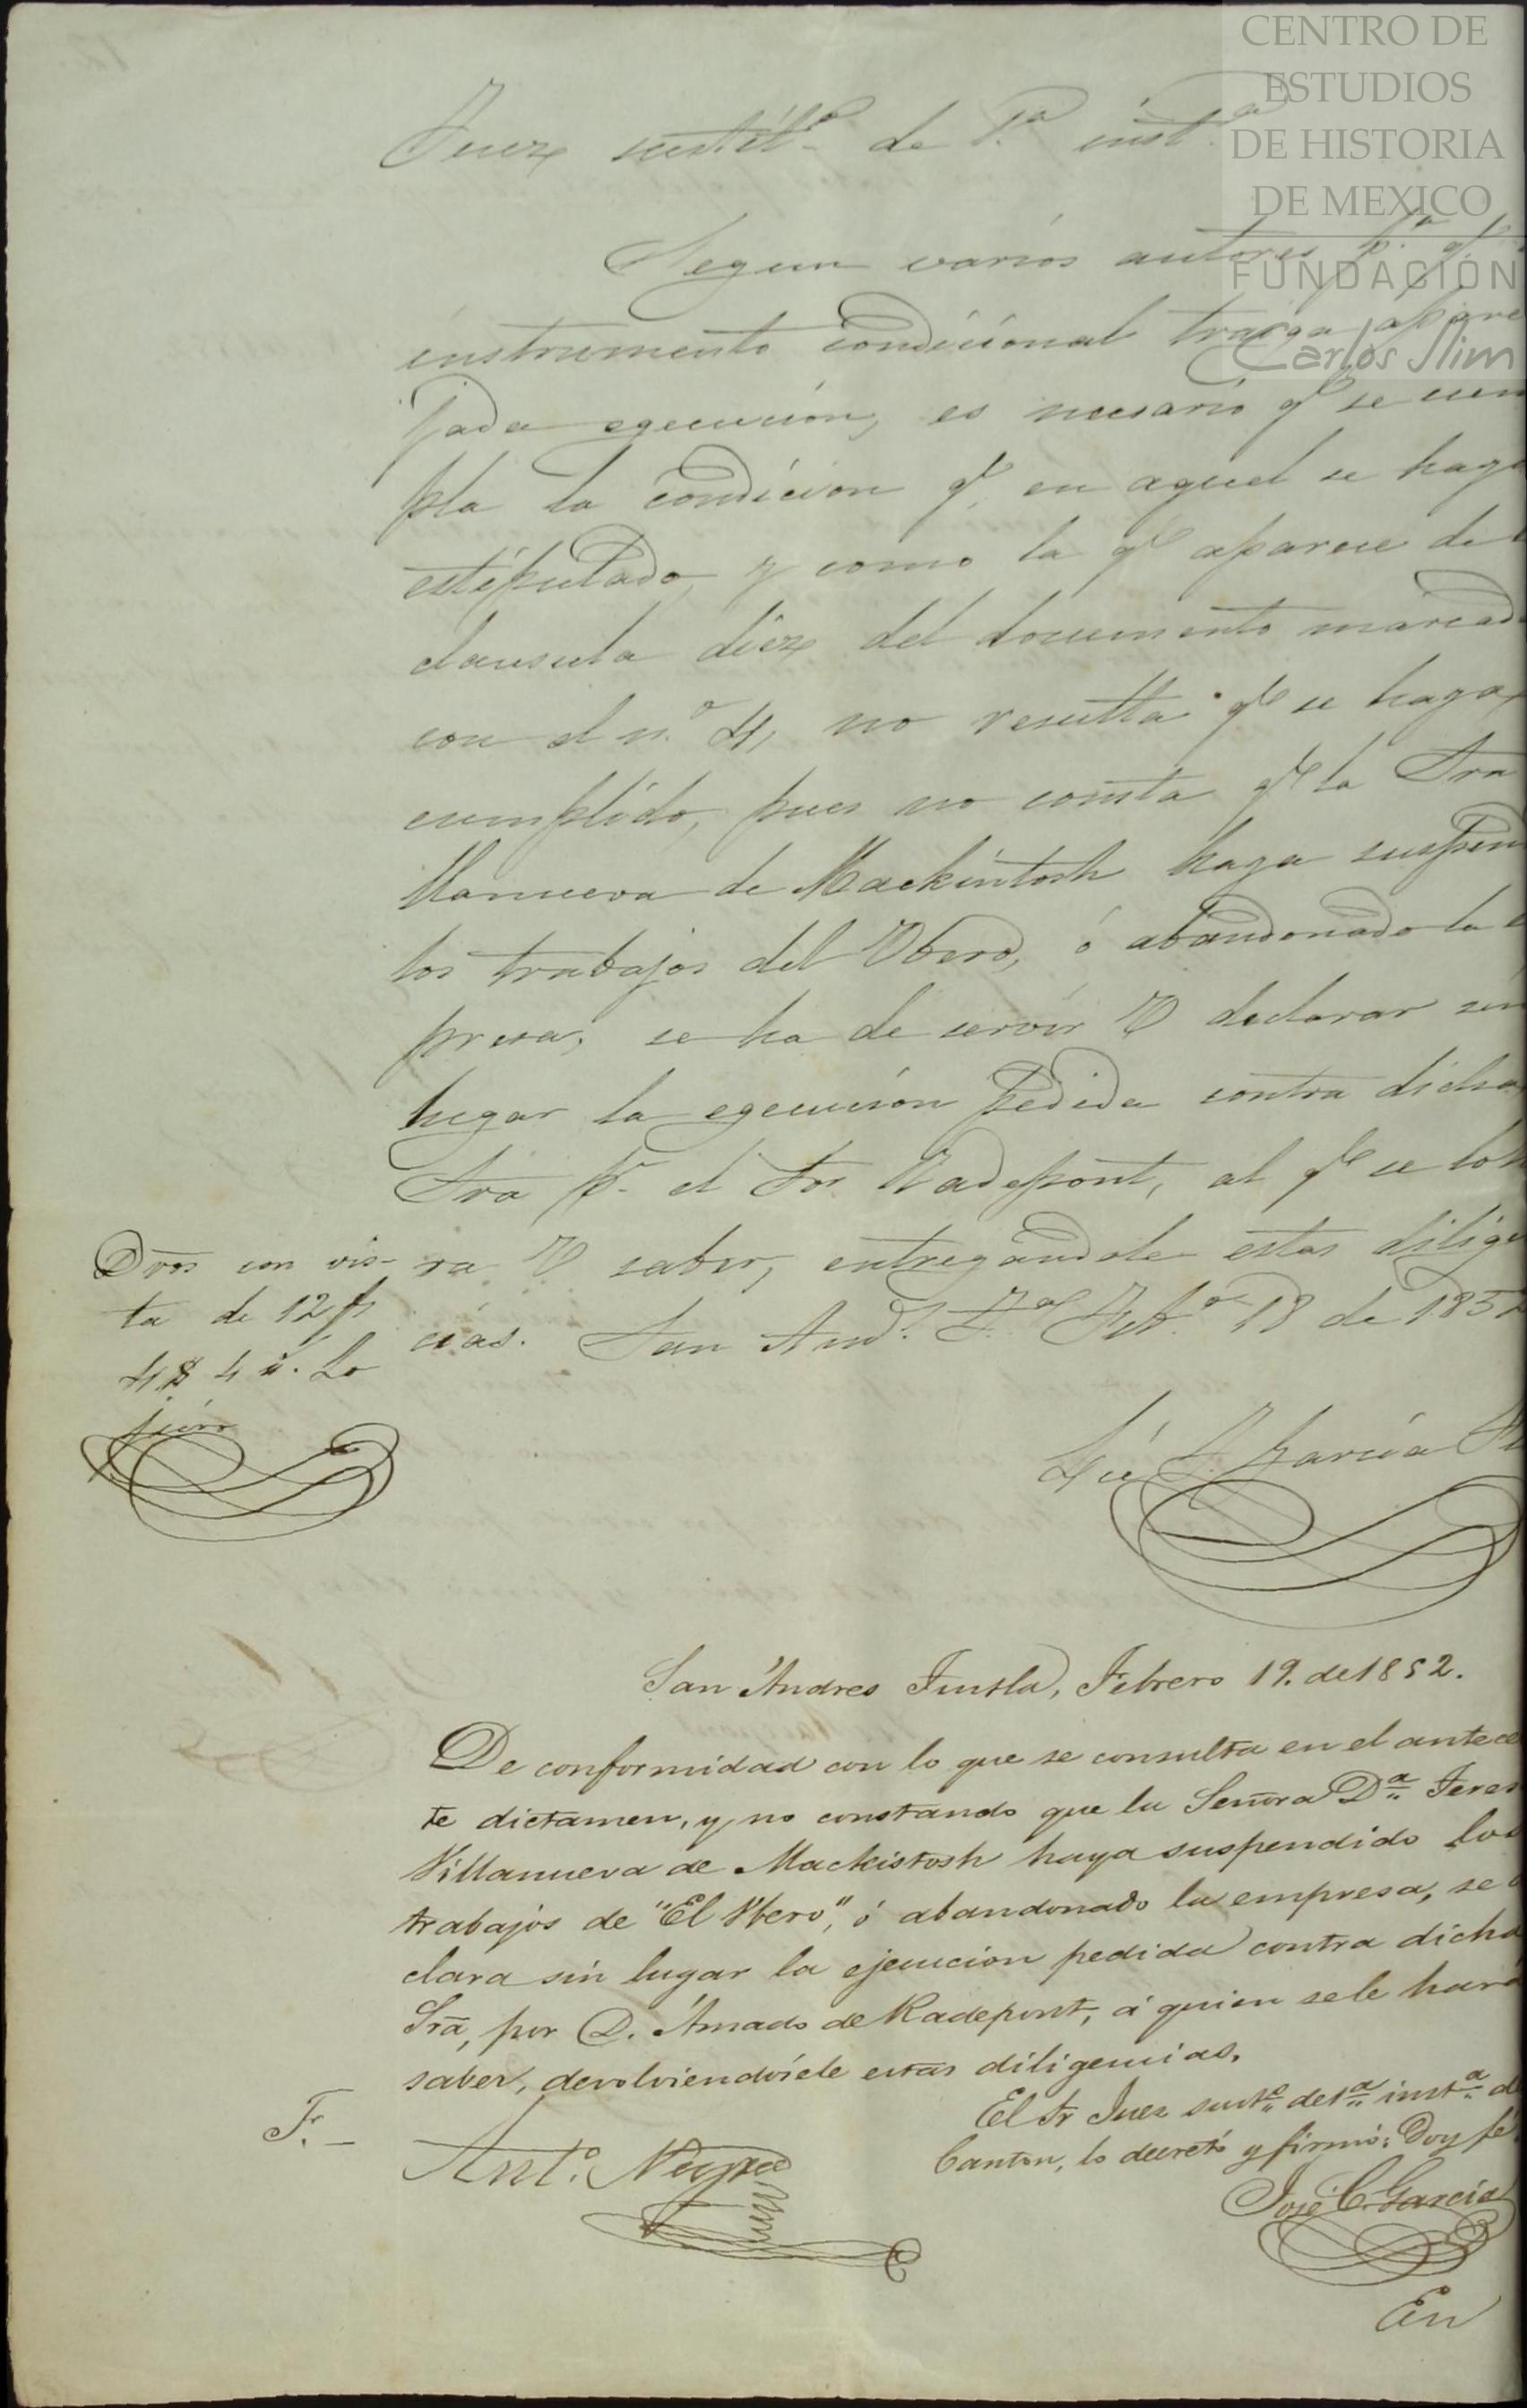 CENTRO DE
ESTUDIOS
DE HISTORIA
DE MEXICO
FUNDACIÓN
Carlos Slim
Juez sustit.º de 1.ª inst.ª
Segun varios autores p.ª q.e
instrumento condicional traiga apare
jada egecucion, es necesario q.e se cum
pla la condicion q.e en aquel se haya
estipulado, y como la q.e aparece de l
clausula diez del documento marcad
con el n.º 4, no resulta q.e se haya
cumplido, pues no consta q.e la Sra
Llanueva de Mackintosh haya suspen
los trabajos del Obero, ó abandonado la e
presa; se ha de servir V declarar sin
lugar la egecucion pedida contra dicha
Sra p.r el Sor Radepont, al q.e se lo h
ra V saber, entregandole estas dilige
cias. San And.s T.la Feb.º 18 de 1852
Lic J. Garcia
Dros con vis-
ta de 12 fs
4 $ 4 r.
San Andres Tuxtla, Febrero 19. de 1852.
De conformidad con lo que se consulta en el antece
te dictamen, y no constando que la Señora D.ª Teres
Villanueva de Mackistosh haya suspendido los
trabajos de "El Obero", ó abandonado la empresa, se d
clara sin lugar la ejecucion pedida contra dicha
Sra, por D. Amado de Radepont, á quien se le hará
saber, devolviendósele estas diligencias.
El Sr Juez sust.º de 1.ª inst.ª d
Canton, lo decretó y firmó: Doy fé.
F. -
Ant.º
José C. Garcia
En